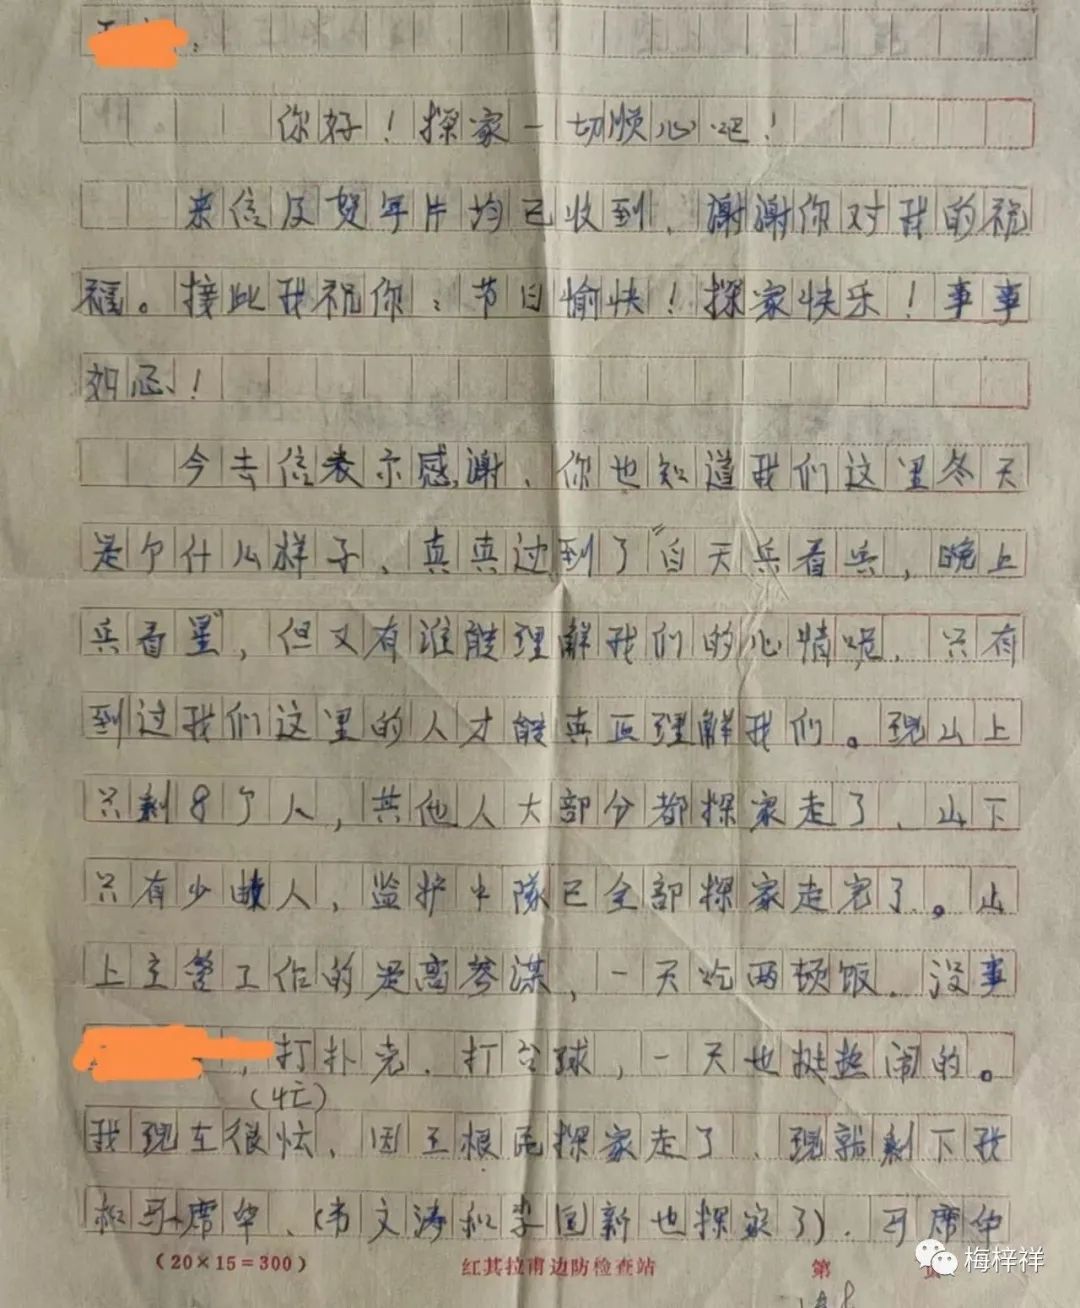 你好！探家一切顺心吧！
来信及贺年片均已收到，谢谢你对我的祝
福。接此我祝你：节日愉快！探家快乐！事事
如心、！
今去信表示感谢，你也知道我们这里冬天
是个什么样子，真真过到了“白天兵看兵，晚上
兵看星”，但又有谁能理解我们的心情呢，只有
到过我们这里的人才能真正理解我们。现山上
只剩8个人，其他人大部分都探家走了，山下
只有少人，监护中队已全部探家走完了。山
上主管工作的是高参谋，一天吃两顿饭，没事
，打扑克，打台球，一天也挺热闹的。
(忙)
我现在很怯，因王根民探家走了，现就剩下我
和马席华、(韦文涛和李国新也探家了)，马席华
(20×15=300)
红其拉甫边防检查站
第 页
梅梓祥